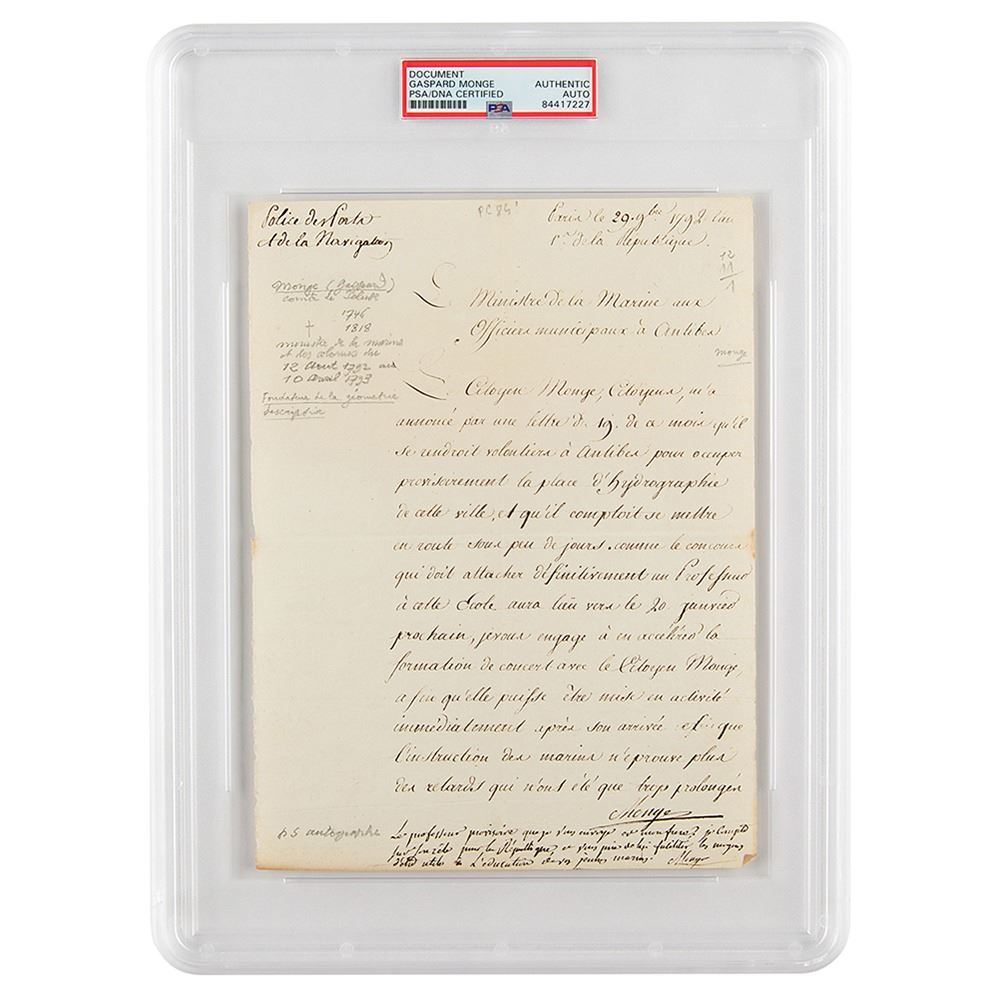 DOCUMENT
GASPARD MONGE
PSA/DNA CERTIFIED
AUTHENTIC
AUTO
84417227
PSA
Police des Ports
et de la Navigation
PC 84
Paris le 29. 9bre 1792 l'an
1er de la République.
12
11
1
Monge (Gaspard)
comte de Peluse
1746
† 1818
ministre de la marine
et des colonies du
12 Aout 1792 au
10 avril 1793
Fondateur de la géometrie
descriptive
Le Ministre de la Marine aux
Officiers municipaux à Antibes
Monge
Le Citoyen Monge, Citoyens, m'a
annoncé par une lettre du 19. de ce mois qu'il
se rendroit volontiers à Antibes pour occuper
provisoirement la place d'Hydrographie
de cette ville, et qu'il comptoit se mettre
en route sous peu de jours. comme le concours
qui doit attacher définitivement un Professeur
à cette Ecole aura lieu vers le 20 janvier
prochain, je vous engage à en accélérer la
formation de concert avec le Citoyen Monge,
afin qu'elle puisse être mise en activité
immédiatement après son arrivée et que
l'instruction des marins n'éprouve plus
des retards qui n'ont été que trop prolongés
Monge
PS autographe
Le professeur provisoire que je vous envoye est mon frere, je compte
sur son zèle pour la République, et vous prie de lui faciliter les moyens
d'être utile à l'éducation de vos jeunes marins. Monge